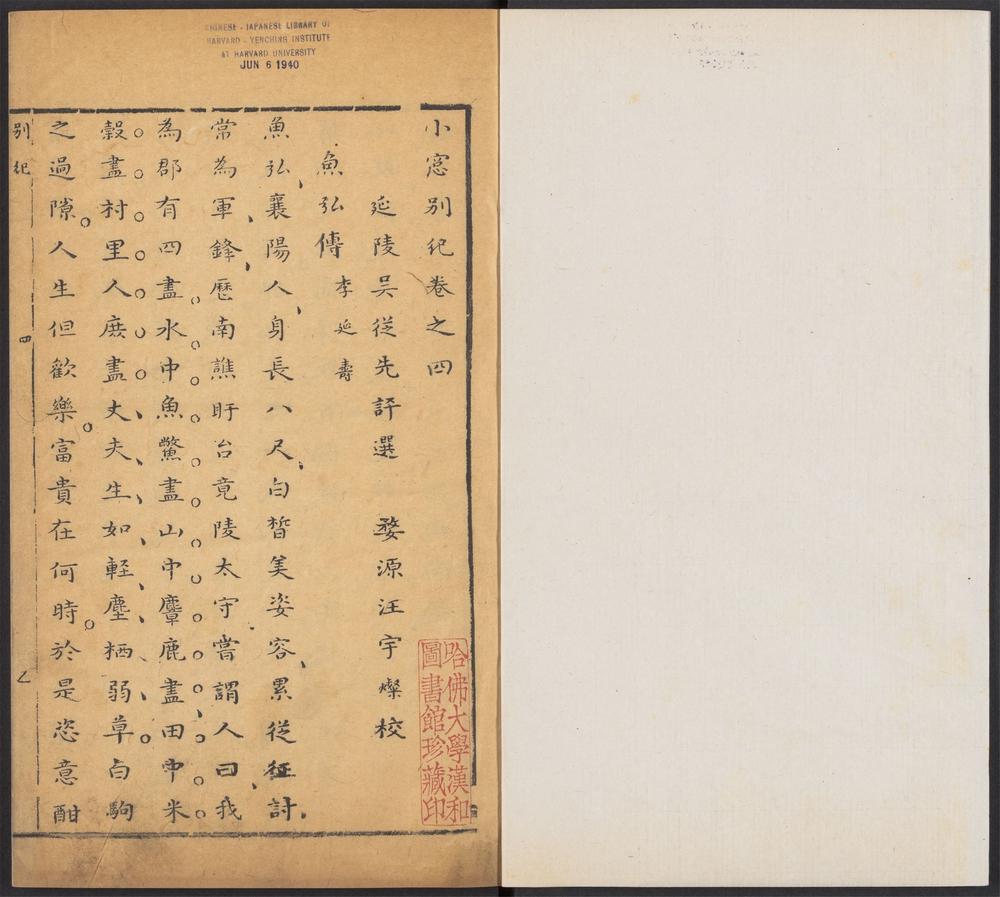 CHINESE - JAPANESE LIBRARY OF
HARVARD - YENCHING INSTITUTE
AT HARVARD UNIVERSITY
JUN 6 1940
小窓別紀卷之四
延陵吴從先評選 婺源汪宇燦校
魚弘傳 李延壽
魚弘襄陽人身長八尺白皙美姿容累從征討
常為軍鋒歷南譙盱台竟陵太守嘗謂人曰我
為郡有四盡水中魚鱉盡山中麞鹿盡田中米
穀盡村里人庶盡丈夫生如輕塵栖弱草白駒
之過隙人生但歡樂富貴在何時於是恣意酣
別紀
四
哈佛大學漢和
圖書館珍藏印